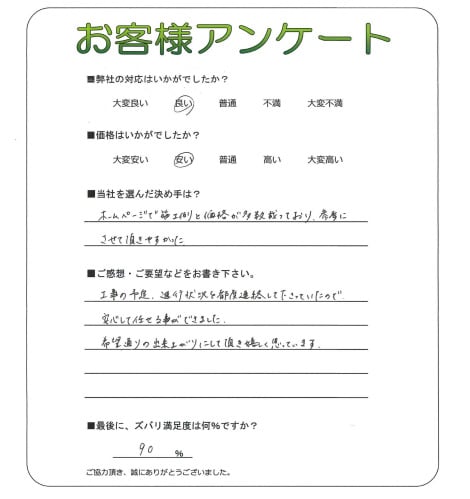 お客様アンケート
■弊社の対応はいかがでしたか？
大変良い 良い 普通 不満 大変不満
■価格はいかがでしたか？
大変安い 安い 普通 高い 大変高い
■当社を選んだ決め手は？
ホームページで施工例と価格が多数載っており、参考に
させて頂きやすかった
■ご感想・ご要望などをお書き下さい。
工事の予定、進行状況を都度連絡して下さっていたので
安心して任せる事ができました。
希望通りの出来上がりにして頂き嬉しく思っています。
■最後に、ズバリ満足度は何％ですか？
90 ％
ご協力頂き、誠にありがとうございました。